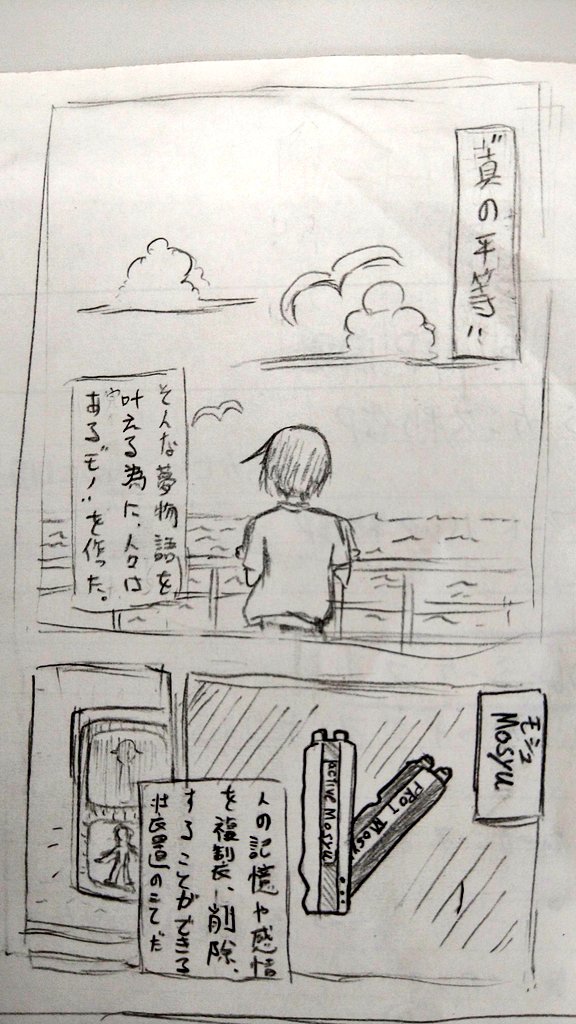 “真の平等”
そんな夢物語を
叶える為に、人々は
ある“モノ”を作った。
モシュ
Mosyu
active Mosyu
PROT Mosy
人の記憶や感情
を複製、削除、
することができる
装置のことだ